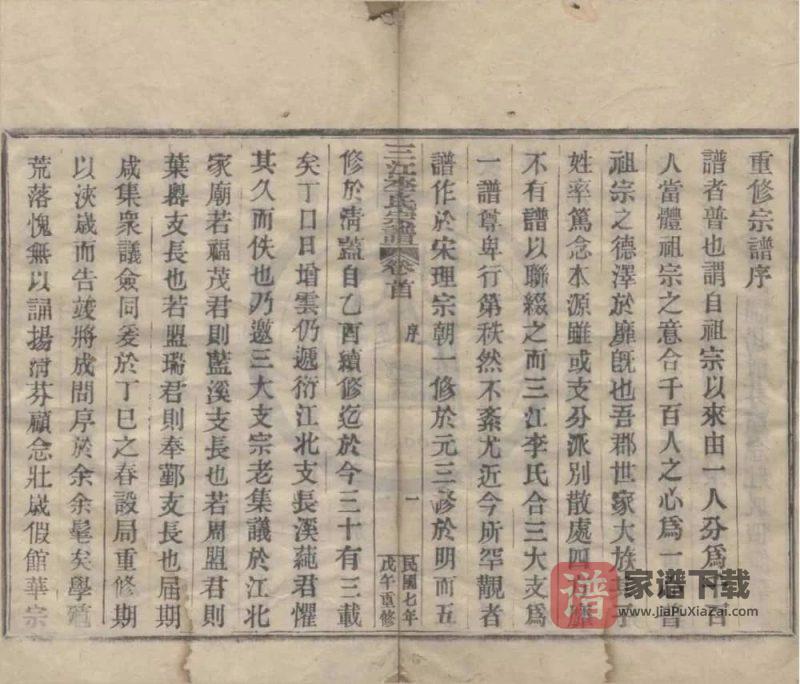 重修宗譜序
譜者普也謂自祖宗以來由一人分為千百
人當體祖宗之意合千百人之心為一
祖宗之德澤於靡旣也吾郡世家大族
姓率篤念本源雖或支分派別散處四方靡
不有譜以聯綴之而三江李氏合三大支為
一譜尊卑行第秩然不紊尤近今所罕覯者
譜作於宋理宗朝一修於元三修於明而五
三江李氏宗譜 卷首 序 一 民國七年戊午重修
修於淸蓋自乙酉續修迄於今三十有三載
矣丁口日增雲仍遞衍江北支長溪蒓君懼
其久而佚也乃邀三大支宗老集議於江北
家廟若福茂君則藍溪支長也若周盟君則
葉嶴支長也若盟瑞君則奉鄞支長也屆期
咸集衆議僉同爰於丁巳之春設局重修期
以浹歲而告竣將成問序於余余髦矣學殖
荒落愧無以誦揚淸芬顧念壯歲假館華宗
譜 家谱下载
www.JiaPuXiazai.com